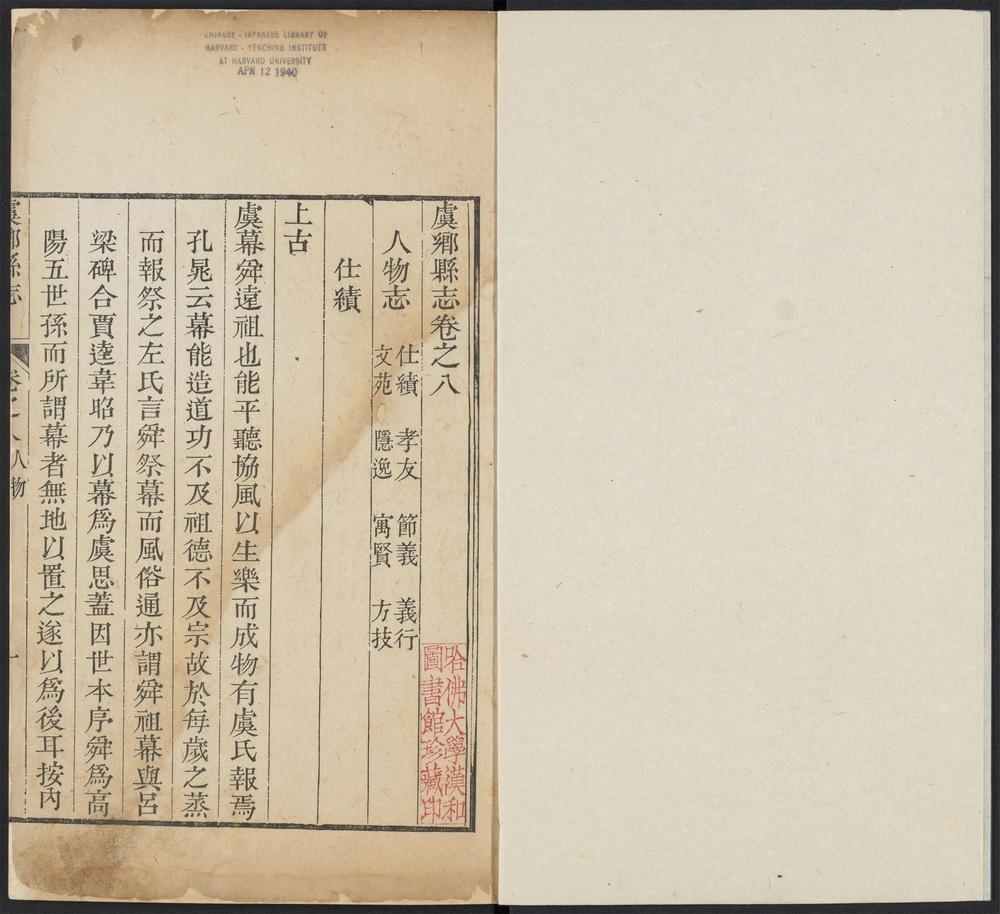 CHINESE - JAPANESE LIBRARY OF
HARVARD - YENCHING INSTITUTE
AT HARVARD UNIVERSITY
APR 12 1940
虞鄉縣志卷之八
人物志 仕績 孝友 節義 義行
文苑 隱逸 寓賢 方技
仕績
上古
虞幕舜遠祖也能平聽協風以生樂而成物有虞氏報焉
孔晁云幕能造道功不及祖德不及宗故於每歲之蒸
而報祭之左氏言舜祭幕而風俗通亦謂舜祖幕與呂
梁碑合賈逵韋昭乃以幕爲虞思蓋因世本序舜爲高
陽五世孫而所謂幕者無地以置之遂以爲後耳按內
虞鄉縣志 卷之八人物 一
哈佛大學漢和
圖書館珍藏印